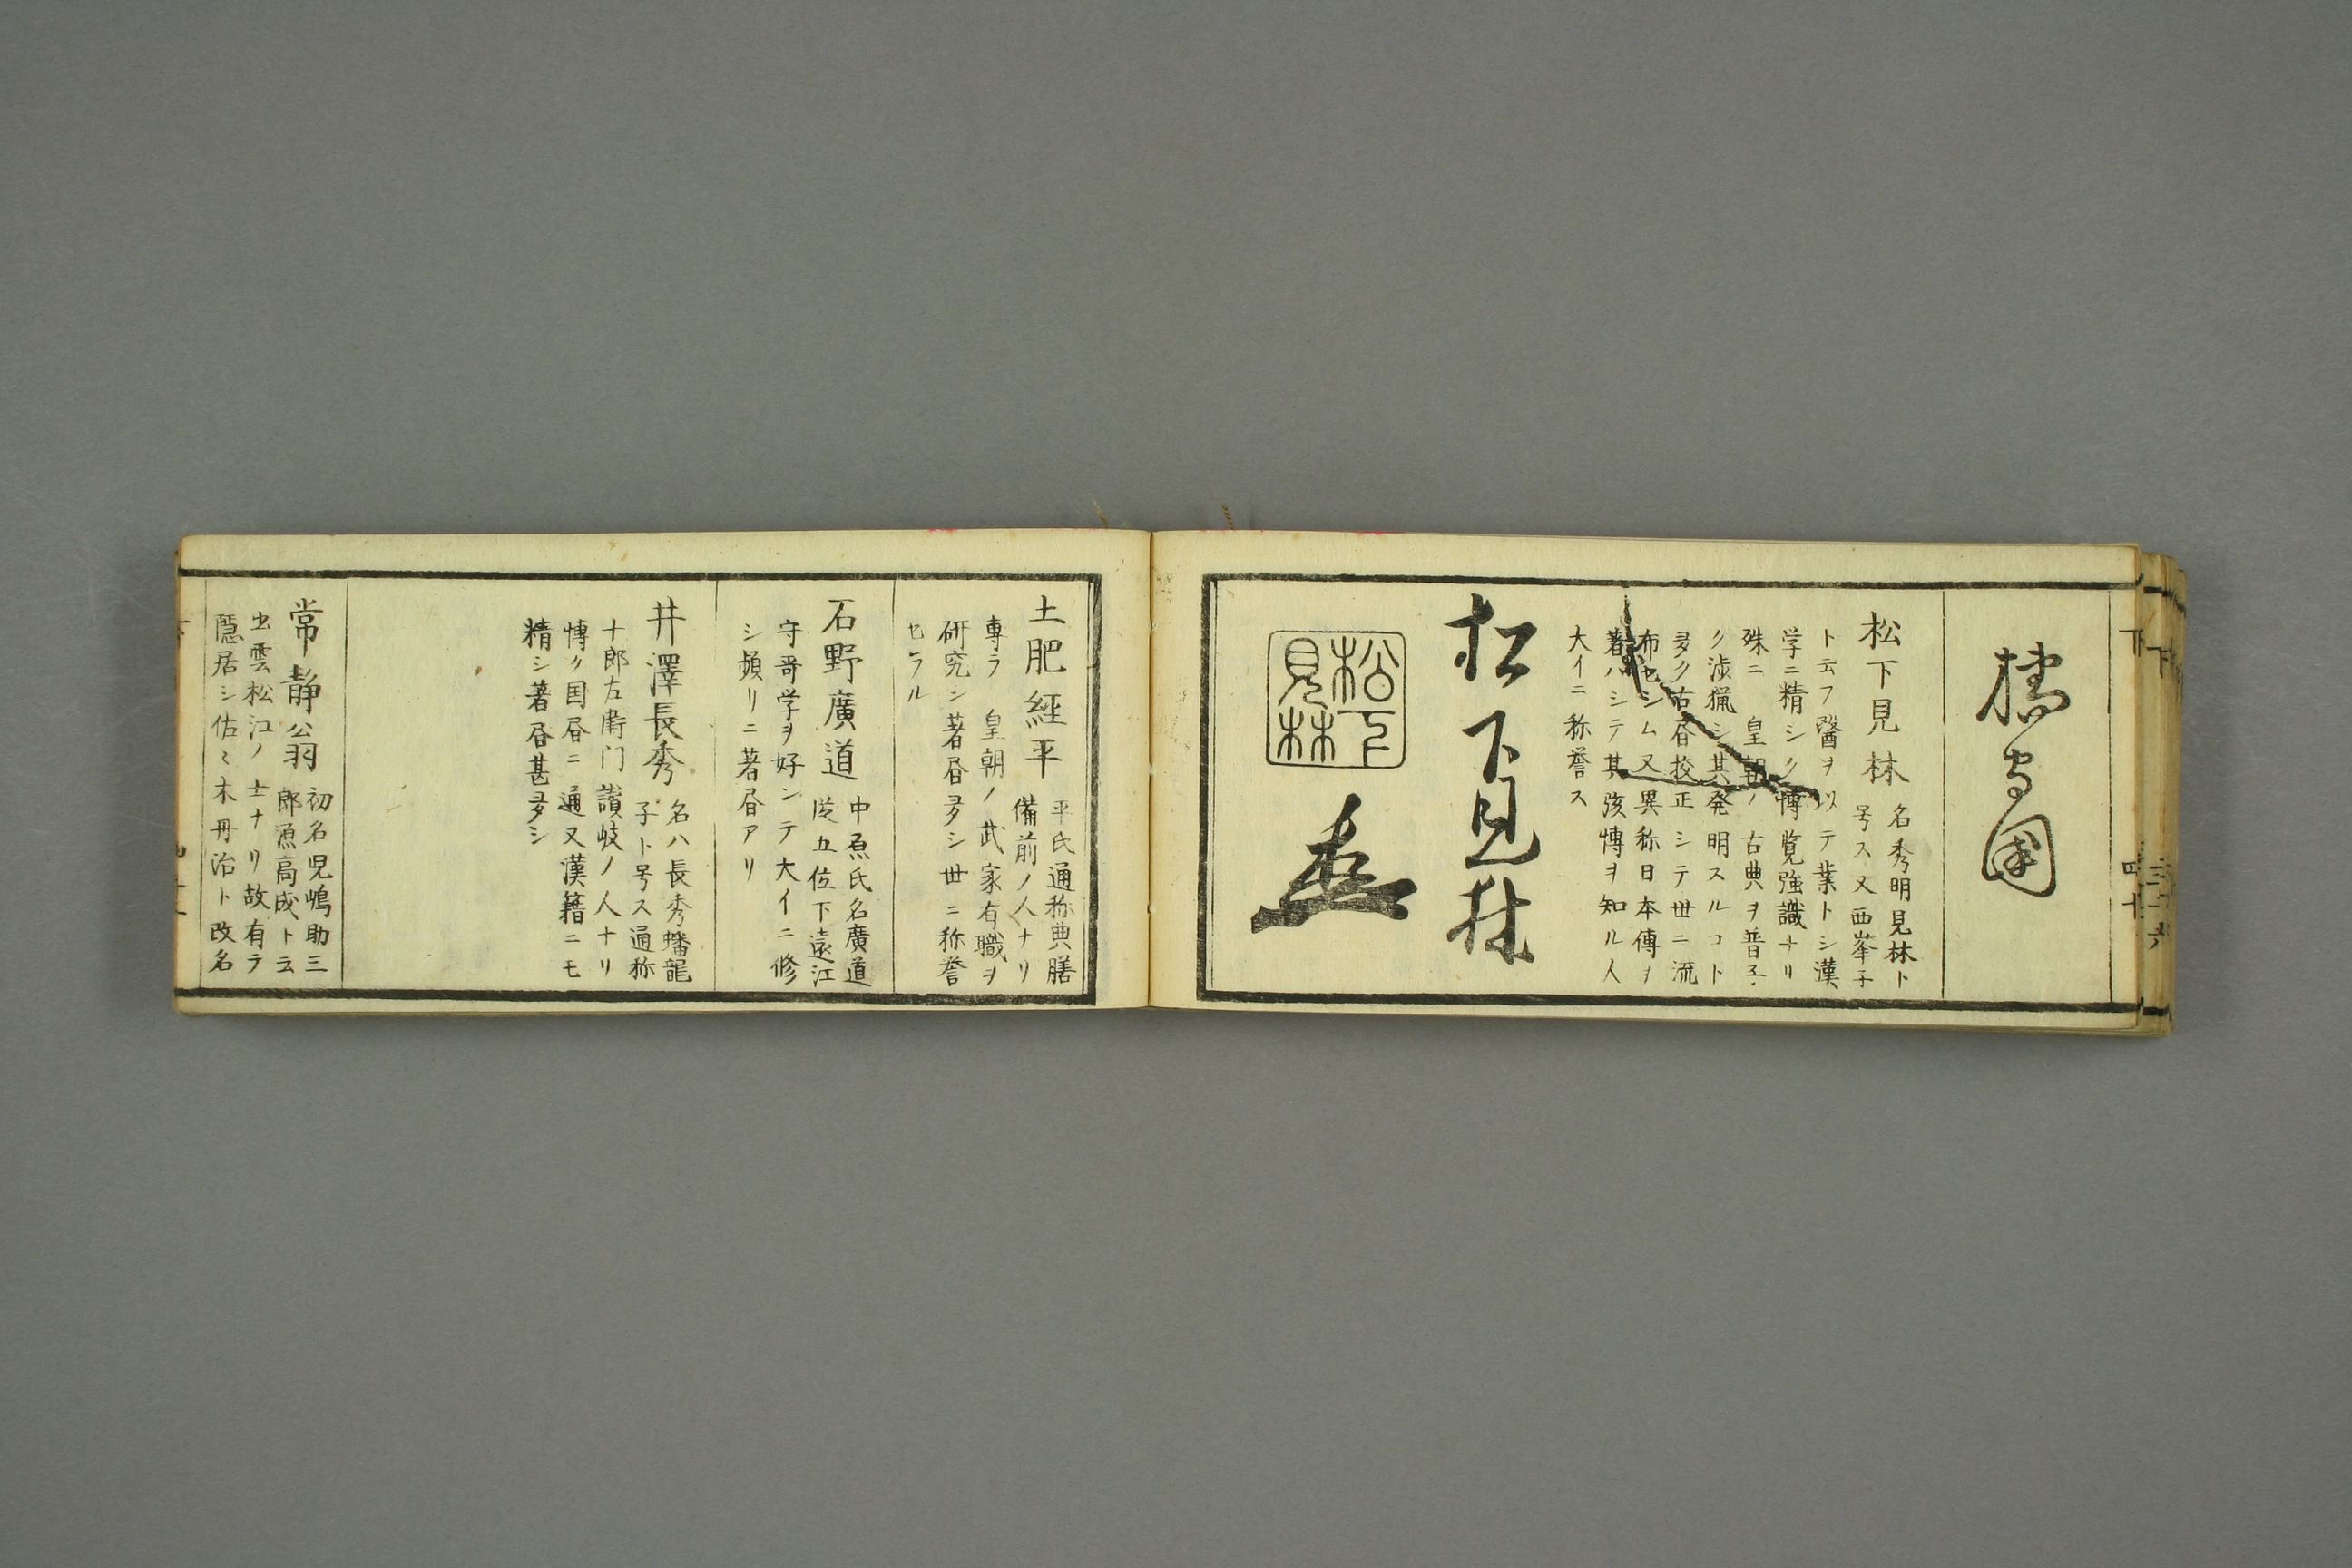 橘守國
松下見林
名秀明見林ト
号ス又西峯子
ト云フ醫ヲ以テ業トシ漢
学ニ精シク博覧強識ナリ
殊ニ 皇朝ノ古典ヲ普子
ク渉猟シ其発明スルコト
多ク古昏校正シテ世ニ流
布セシム又異称日本傳ヲ
著ハシテ其該博ヲ知ル人
大イニ称誉ス
松下見林
松下
見林
土肥經平
平氏通称典膳
備前ノ人ナリ
専ラ 皇朝ノ武家有職ヲ
研究シ著昏多シ世ニ称誉
セラル
石野廣道
中原氏名廣道
従五位下遠江
守哥学ヲ好ンテ大イニ修
シ頻リニ著昏アリ
井澤長秀
名ハ長秀蟠龍
子ト号ス通称
十郎左衛门讃岐ノ人ナリ
博ク国昏ニ通又漢籍ニモ
精シ著昏甚多シ
常静翁
初名児嶋助三
郎源高成ト云
出雲松江ノ士ナリ故有テ
隠居シ佐々木丹治ト改名